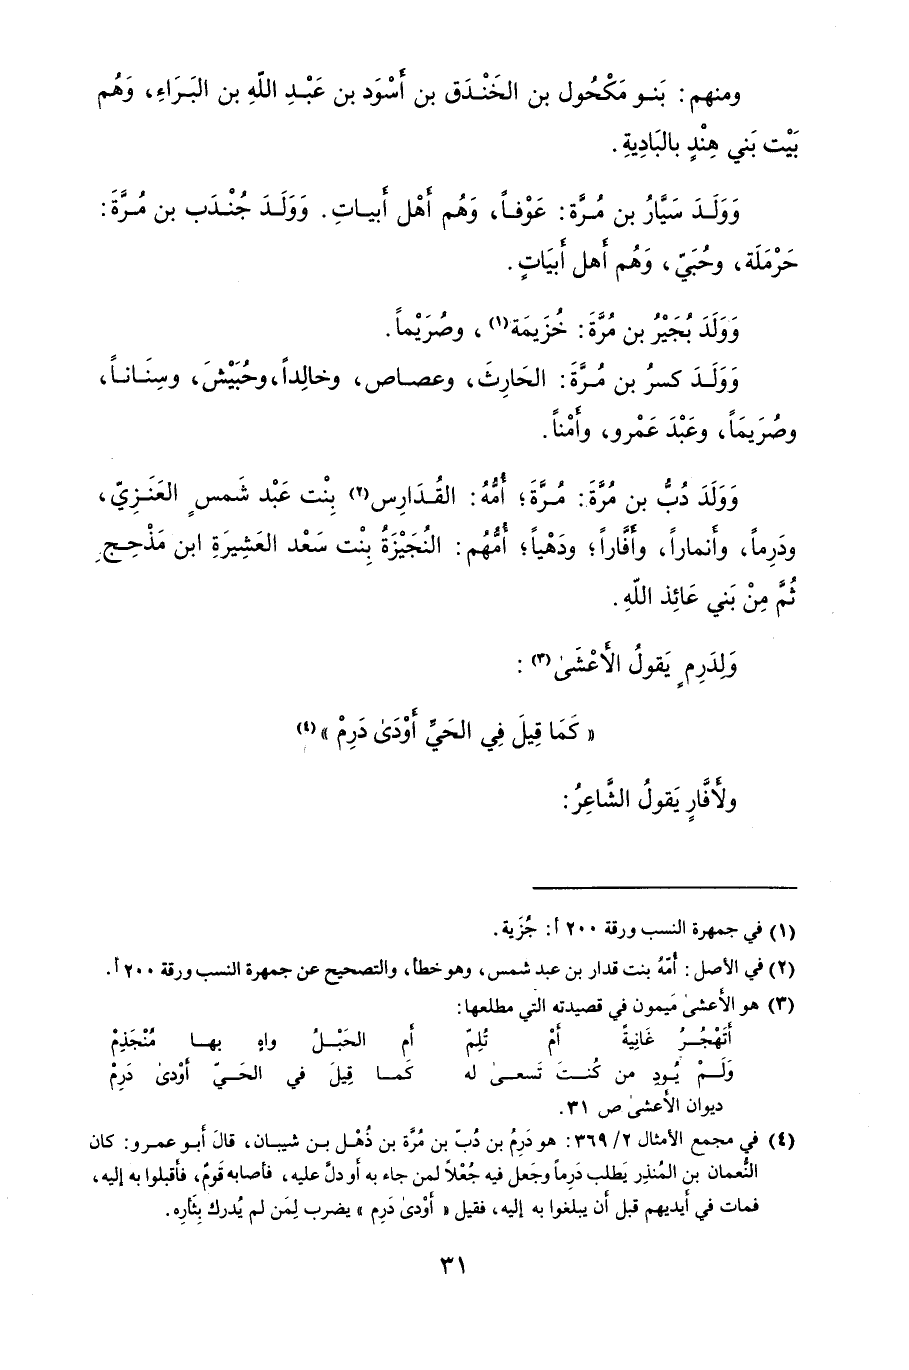 ومنهم : بَنـو مَكْحُول بن الخَنْـدَق بن أَسْوَد بن عَبْـدِ اللّهِ بن البَـرَاءِ، وَهُم
بَيْت بَني هِنْدٍ بالبَادِيةِ .
وَوَلَـدَ سَيَّارُ بن مُـرَّة : عَوْفـاً، وَهُم أَهْل أَبيـاتٍ. وَوَلَـدَ جُنْـدَب بن مُـرَّةَ :
حَرْمَلَة، وحُبَيّ، وَهُم أَهل أَبيَاتٍ .
وَوَلَدَ بُجَيْرُ بن مُرَّةَ : خُزَيمَة(١)، وصُرَيْماً .
وَوَلَـدَ كسرُ بن مُـرَّةَ : الحَارِثَ، وعصاص، وخالِداً، وحُبَيْشَ، وسِنَـانـاً،
وصُرَيمَاً، وعَبْدَ عَمْرو، وأَمْناً .
وَوَلَدَ دُبُّ بن مُرَّةَ : مُـرَّةَ؛ أُمُّهُ : القُـدَارِس(٢) بِنْت عَبْد شَمس ٍ العَنَـزِيّ،
ودَرِماً، وأَنماراً، وأَفَّاراً؛ ودَهْياً؛ أُمُّهُم : النُجَيْزَةُ بِنْت سَعْد العَشِيرَةِ ابن مَذْحِـج ٍ
ثُمَّ مِنْ بَني عَائِذ اللّهِ .
وَلِدَرِم ٍ يَقولُ الأَعْشَىٰ(٣) :
« كَمَا قِيلَ فِي الحَيِّ أَوْدَىٰ دَرِمْ »(٤)
ولأَفَّارٍ يَقولُ الشَّاعِرُ :
(١) في جمهرة النسب ورقة ٢٠٠ أ : جُزَية .
(٢) في الأصل : أُمّهُ بنت قدار بن عبد شمس، وهو خطأ، والتصحيح عن جمهرة النسب ورقة ٢٠٠ أ .
(٣) هو الأعشىٰ مَيمون في قصيدته التي مطلعها :
أَتَهْجُـرُ غَانِيةً أَمْ تُلِمّ أم الحَبْـلُ واهٍ بهـا مُنْجَذِمْ
وَلَـمْ يُـودِ من كُنـتَ تَسعـىٰ له كَمـا قِيلَ في الحَـيّ أَوْدىٰ دَرِمْ
ديوان الأعشىٰ ص ٣١.
(٤) في مجمع الأمثال ٢/ ٣٦٩ : هو دَرِمُ بن دُبّ بن مُرَّة بن ذُهْـل بـن شيبان، قالَ أبـو عمـرو : كان
النُّعمان بن المُنذِر يَطلب دَرِماً وجَعل فيه جُعْلاً لمن جاء به أو دلَّ عليه، فأصابه قَومٌ، فأقبلوا به إليه،
فمات في أيديهم قبل أن يبلغوا به إليه، فقيل « أَوْدىٰ دَرِم » يضرب لِمَن لم يُدرك بِثَارِه .
٣١